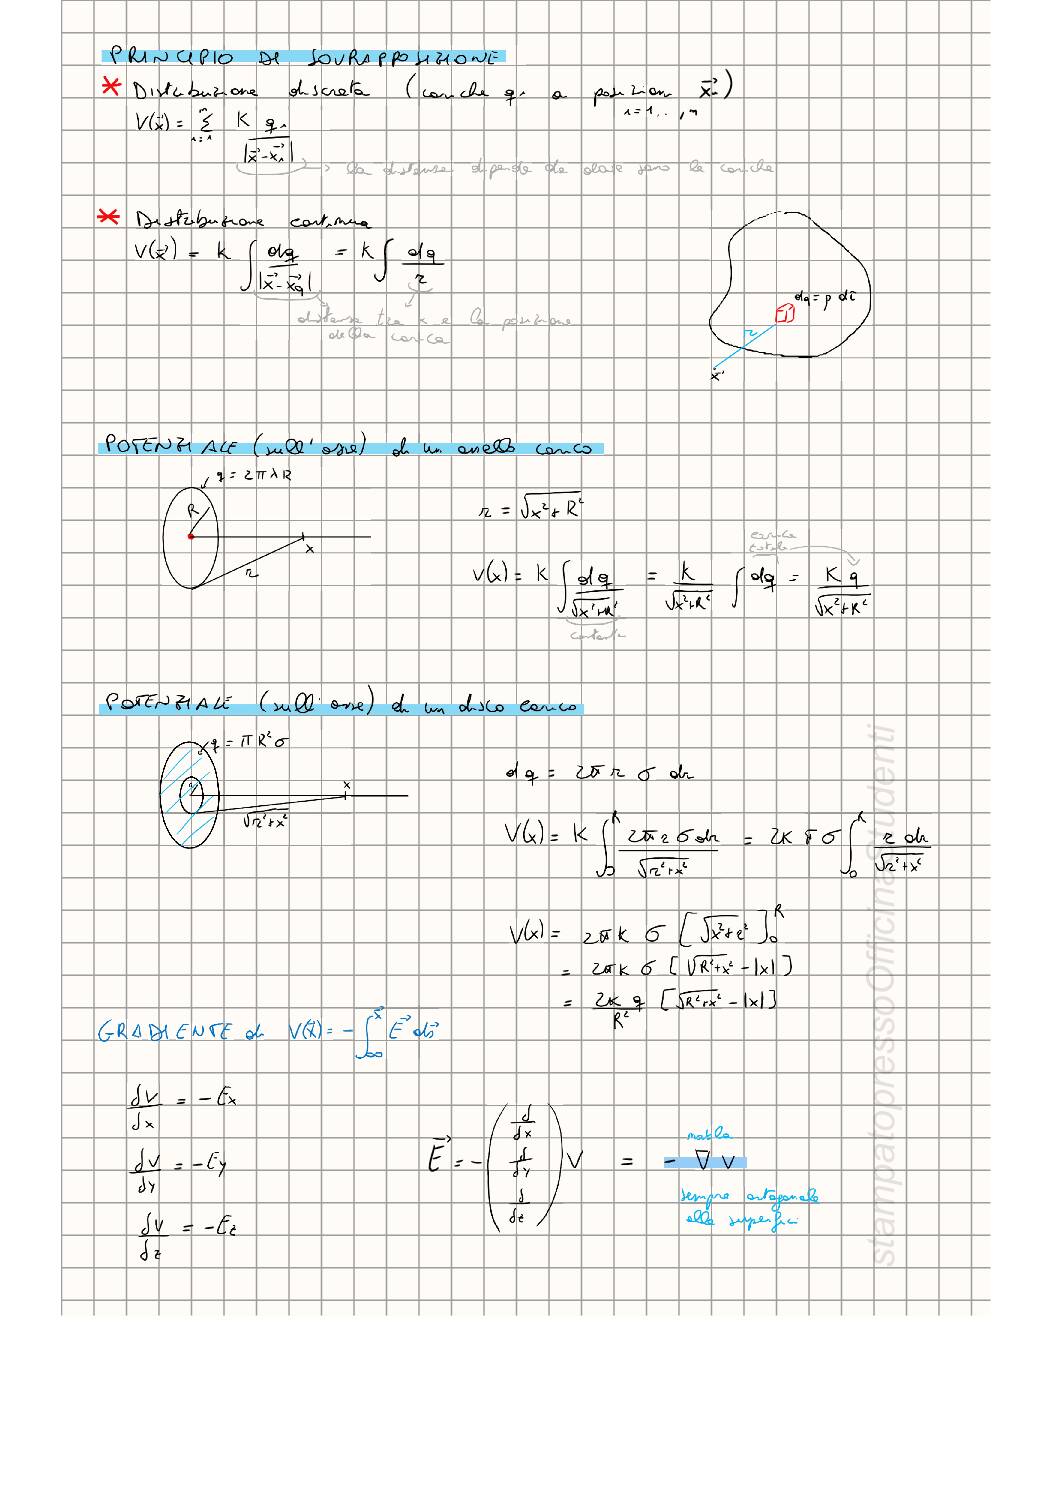 PRINCIPIO DI SOVRAPPOSIZIONE
* Distribuzione discreta (cariche qᵢ a posizioni x⃗ᵢ) i=1,..,n
V(x⃗) = Σⁿᵢ₌₁ K qᵢ / |x⃗-x⃗ᵢ|
→ la distanza dipende da dove sono le cariche
* Distribuzione continua
V(x⃗) = K ∫ dq / |x⃗-x⃗q| = K ∫ dq / r
distanza tra x e la posizione
della carica
dq = ρ dτ
r
x⃗
POTENZIALE (sull'asse) di un anello carico
q = 2πλR
R
x
r
r = √(x²+R²)
carica
totale
V(x) = K ∫ dq / √(x²+R²) = K / √(x²+R²) ∫ dq = K q / √(x²+R²)
costante
POTENZIALE (sull'asse) di un disco carico
q = πR²σ
r
x
√(r²+x²)
dq = 2π r σ dr
V(x) = K ∫₀ᴿ 2π r σ dr / √(r²+x²) = 2K π σ ∫₀ᴿ r dr / √(r²+x²)
V(x) = 2πK σ [√(x²+r²)]₀ᴿ
= 2πK σ [√(R²+x²) - |x|]
= 2K q / R² [√(R²+x²) - |x|]
GRADIENTE di V(x⃗) = - ∫_∞^x⃗ E⃗ ds⃗
dV/dx = -Ex
dV/dy = -Ey
dV/dz = -Ez
E⃗ = - (d/dx d/dy d/dz) V = - ∇ V
nabla
sempre ortogonale
alle superfici
stampatopressoOfficinaStudenti